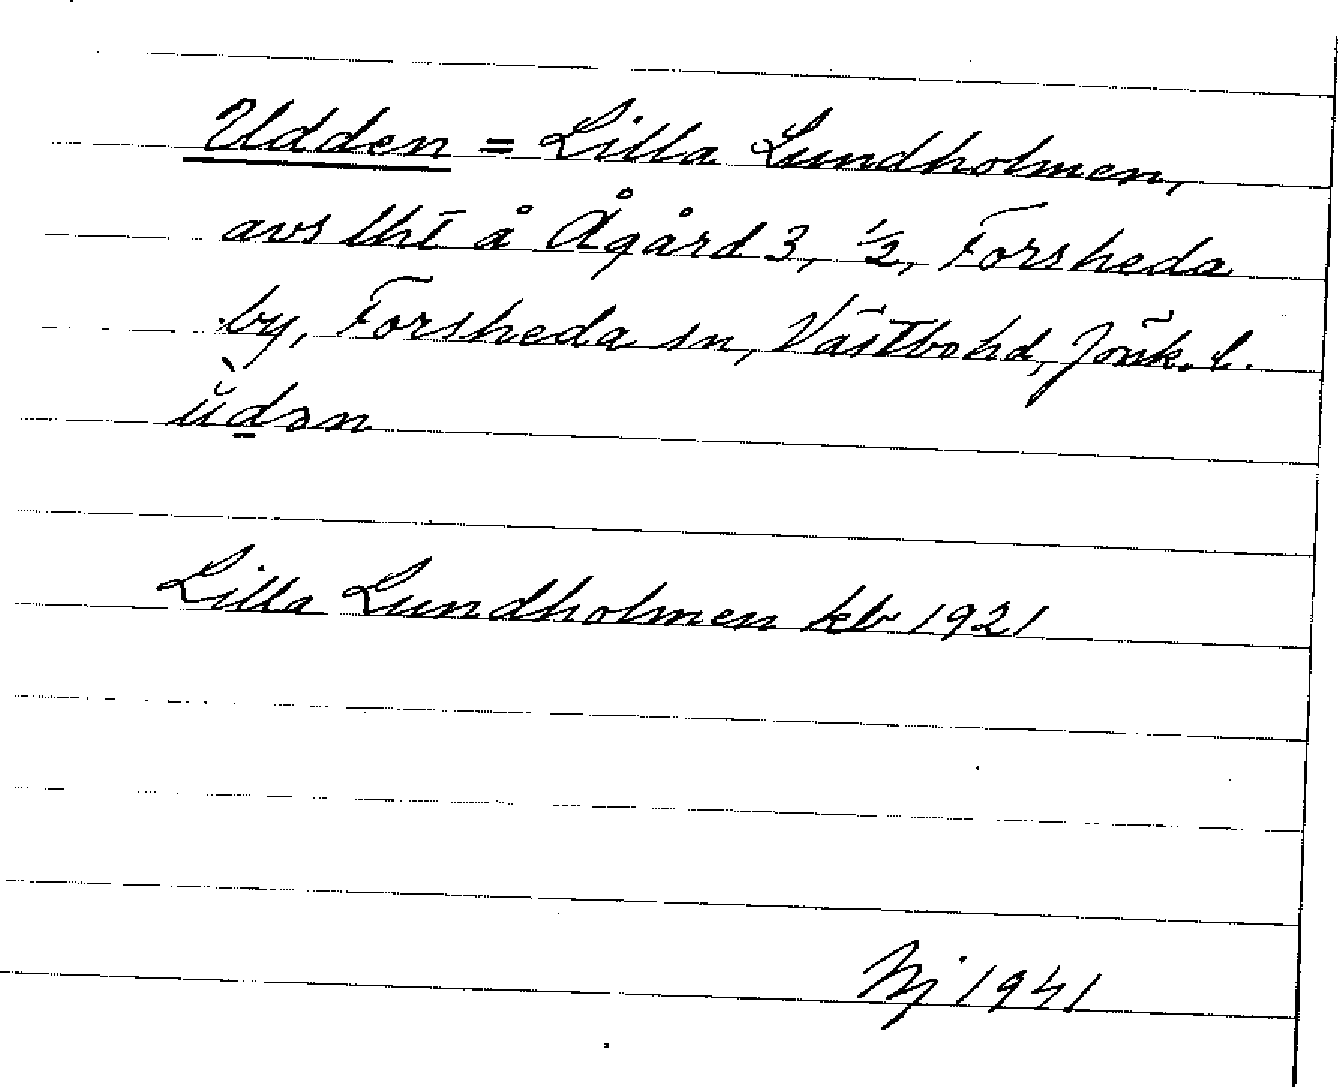 Udden = Lilla Lundholmen,
avs lht å Ågård 3, ½, Forsheda
by, Forsheda sn, Västbo hd, Jönk. l.
ùdən
Lilla Lundholmen kb 1921
1941